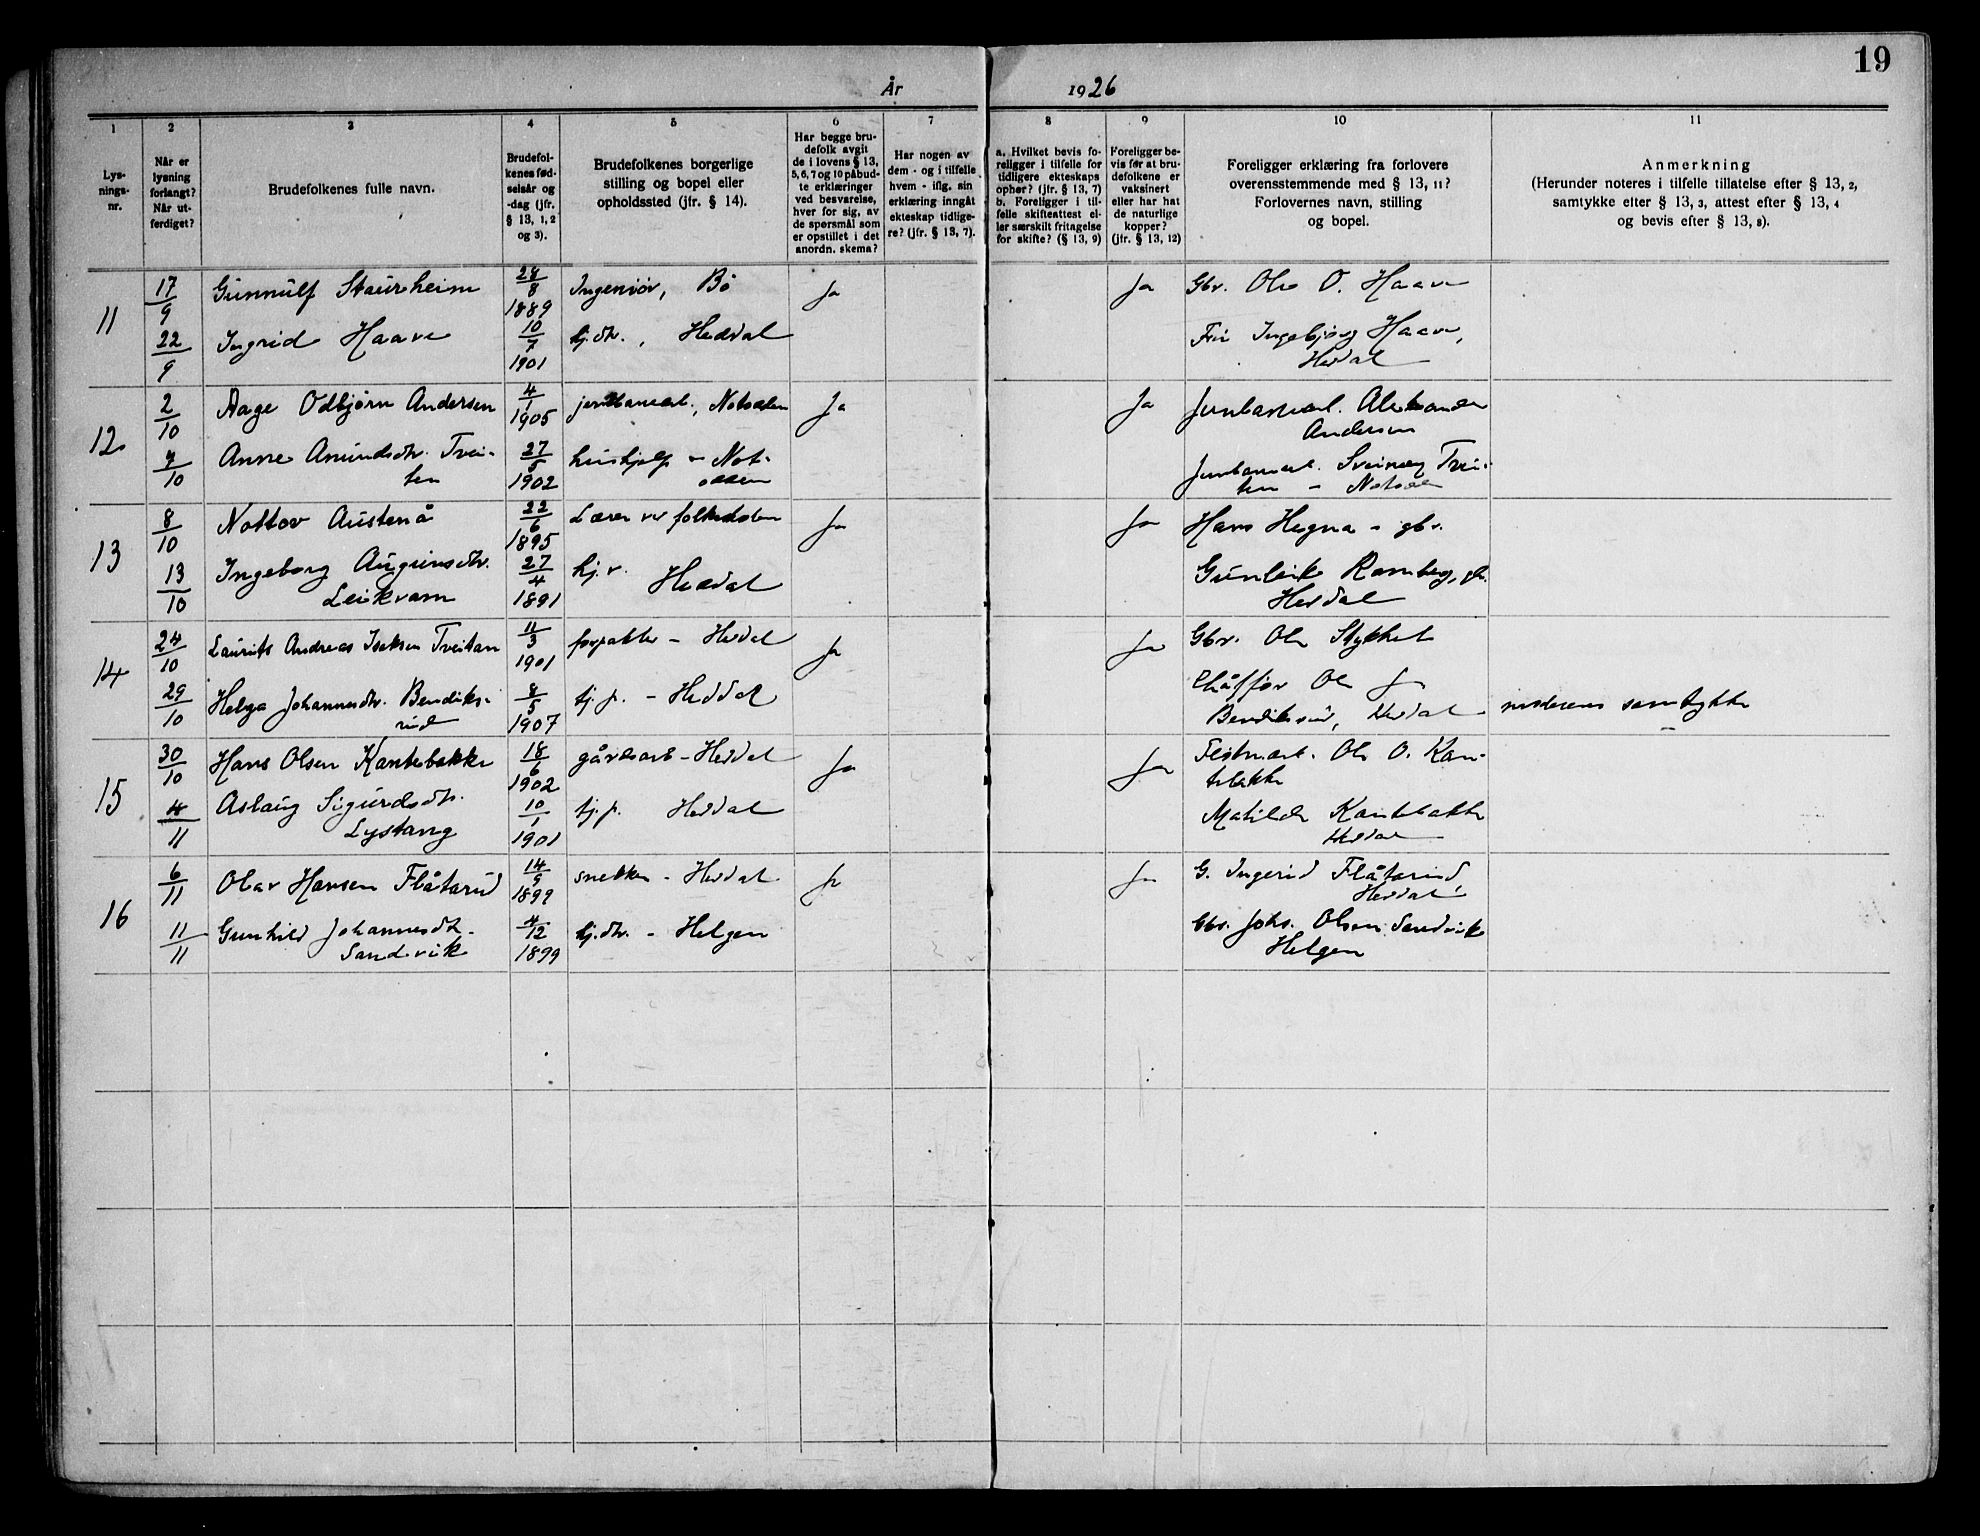 19
År 1926
1
2
3
4
5
6
7
8
9
10
11
Lys-
nings-
nr.
Når er
lysning
forlangt?
Når ut-
ferdiget?
Brudefolkenes fulle navn.
Brudefol-
kenes fød-
selsår og
-dag (jfr.
§ 13, 1, 2
og 3).
Brudefolkenes borgerlige
stilling og bopel eller
opholdssted (jfr. § 14).
Har begge bru-
defolk avgit
de i lovens § 13,
5, 6, 7 og 10 påbud-
te erklæringer
ved besvarelse,
hver for sig, av
de spørsmål som
er opstillet i det
anordn. skema?
Har nogen av
dem - og i tilfelle
hvem - iflg. sin
erklæring inngåt
ekteskap tidlige-
re? (jfr. § 13, 7).
a. Hvilket bevis fo-
religger i tilfelle for
tidligere ekteskaps
ophør? (jfr. § 13, 7)
b. Foreligger i til-
felle skifteattest el-
ler særskilt fritagelse
for skifte? (§ 13, 9)
Foreligger be-
vis for at bru-
defolkene er
vaksinert
eller har hat
de naturlige
kopper?
(jfr. § 13, 12)
Foreligger erklæring fra forlovere
overensstemmende med § 13, 11?
Forlovernes navn, stilling
og bopel.
Anmerkning
(Herunder noteres i tilfelle tillatelse efter § 13, 2,
samtykke efter § 13, 3, attest efter § 13, 4
og bevis efter § 13, 8).
11
17/9
Gunnulf Staurheim
28/8 1889
Ingeniør, Bø
Ja
Ja
Gbr. Ole O. Haave
22/9
Ingrid Haave
10/7 1901
tj.dtr., Heddal
Frk Ingebjørg Haave,
Heddal
12
2/10
Aage Odbjørn Andersen
4/1 1905
jernbanearb., Notodden
Ja
Ja
Jernbanearb. Aleksander
Andersen
7/10
Anne Amundsdtr. Tvei-
ten
27/5 1902
hushjelp - Not-
odden
Jernbanearb. Sveinung Tvei-
ten - Notodden
13
8/10
Nottov Austenå
22/6 1895
Lærer ved folkeskolen
Ja
Ja
Hans Hegna - gbr.
13/10
Ingeborg Augunsdtr.
Leikvam
27/4 1891
hj.v. Heddal
Gunleik Ramberg, gbr.
Heddal
14
24/10
Laurits Andreas Isaksen Tveitan
11/3 1901
forpakter - Heddal
Ja
Ja
Gbr. Ole Stykket
29/10
Helga Johannesdtr. Bendiks-
rud
8/5 1907
tj.p. - Heddal
Chåffør Ole J
Bendiksrud, Heddal
moderens samtykke
15
30/10
Hans Olsen Kantebakke
18/6 1902
gårdsarb - Heddal
Ja
Ja
Ole O. Kan-
tebakke
4/11
Aslaug Sigurdsdtr.
Lystang
10/1 1901
tj.p. Heddal
Matilde Kantebakke
Heddal
16
6/11
Olav Hansen Flåtarud
14/9 1899
snekker - Heddal
Ja
Ja
G. Ingerid Flåtarud,
Heddal
11/11
Gunhild Johannesdtr.
Sandvik
4/12 1899
tj.dtr. - Helgen
Gbr. Johs. Olsen Sandvik
Helgen